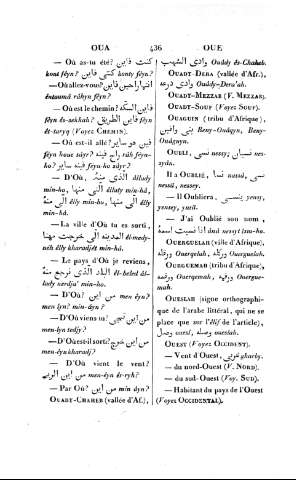 OUA 436 OUE
— Où as-tu été? كنت فاين
kont féyn? كنتى فاين konty féyn?
— Où allez-vous? انتوا راحين فاين
entoumâ râhyn féyn?
— Où est le chemin? فاين السكة
féyn és-sekkah? فاين الطريق féyn
ét-taryq (Voyez CHEMIN).
— Où est-il allé? فين هو ساير
féyn houe sâyr? راح فينه râh féyn-
ho? ساير فينه féyn-ho sâyr?
— D'Où, الذى منه éllady
min-ho, الذى منها éllaty min-hâ,
اللى منه élly min-ho, اللى منها élly
min-hâ.
— La ville d'Où tu es sorti,
المدينه الى خرجت منها él-medy-
néh élly kharadjét min-hâ.
— Le pays d'Où je reviens,
البلد الذى نرجع منه él-beled él-
lady nerdja' min-ho.
— D'Où? من اين men éyn?
men éyn? min-âyn?
— D'Où viens tu? من اين تجى
men-âyn tedjy?
— D'Où est-il sorti? من اين خرج
men-âyn kharadj?
— D'Où vient le vent?
من اين الريح men-âyn ér-ryh?
— Par Où? من اين min âyn?
OUADY-CHAHEB (vallée d'Af.),
وادى الشهب Ouâdy és-Chahab.
OUADY-DERA (vallée d'Afr.),
وادى درعه Ouâdy-Dera'ah.
OUADY-MEZZAB (V. MEZZAB).
OUADY-SOUF (Voyez SOUF).
OUAGUIN (tribu d'Afrique),
بنى واقين Beny-Ouâqyn, Beny-
Ouâguyn.
OUBLI, نسى nessy; نسيان nes-
syân.
Il a OUBLIÉ, نسا nessâ, نسى
nessä, nessey.
— Il Oubliera, ينسى yenssy,
yensey, ynsil.
— J'ai Oublié son nom,
انا نسيت اسمه anâ nessyt ism-ho.
OUERGUELAH (ville d'Afrique),
وركله Ouerqelah, وركله Ouerguelah.
OUERGUEMAH (tribu d'Afrique),
ورقمه Ouerqemah, وركمه Ouergue-
mah.
OUESLAH (signe orthographi-
que de l'arabe littéral, qui ne se
place que sur l'Elif de l'article),
وصل ouesl, وصله ouesslah.
OUEST (Voyez OCCIDENT).
— Vent d'Ouest, غربى gharby.
— du nord-Ouest (V. NORD).
— du sud-Ouest (Voy. SUD).
— Habitant du pays de l'Ouest
(Voyez OCCIDENTAL).